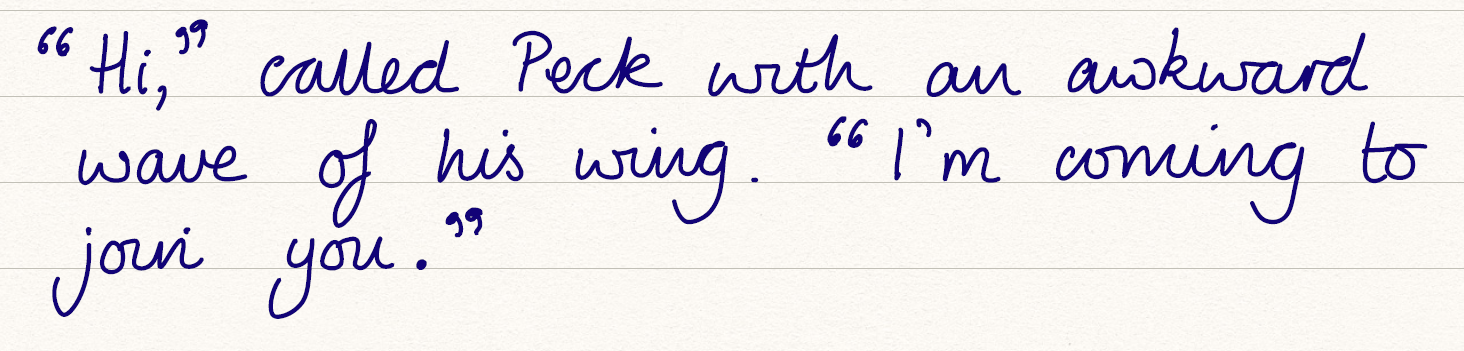 “Hi,” called Peck with an awkward
wave of his wing. “I’m coming to
join you.”